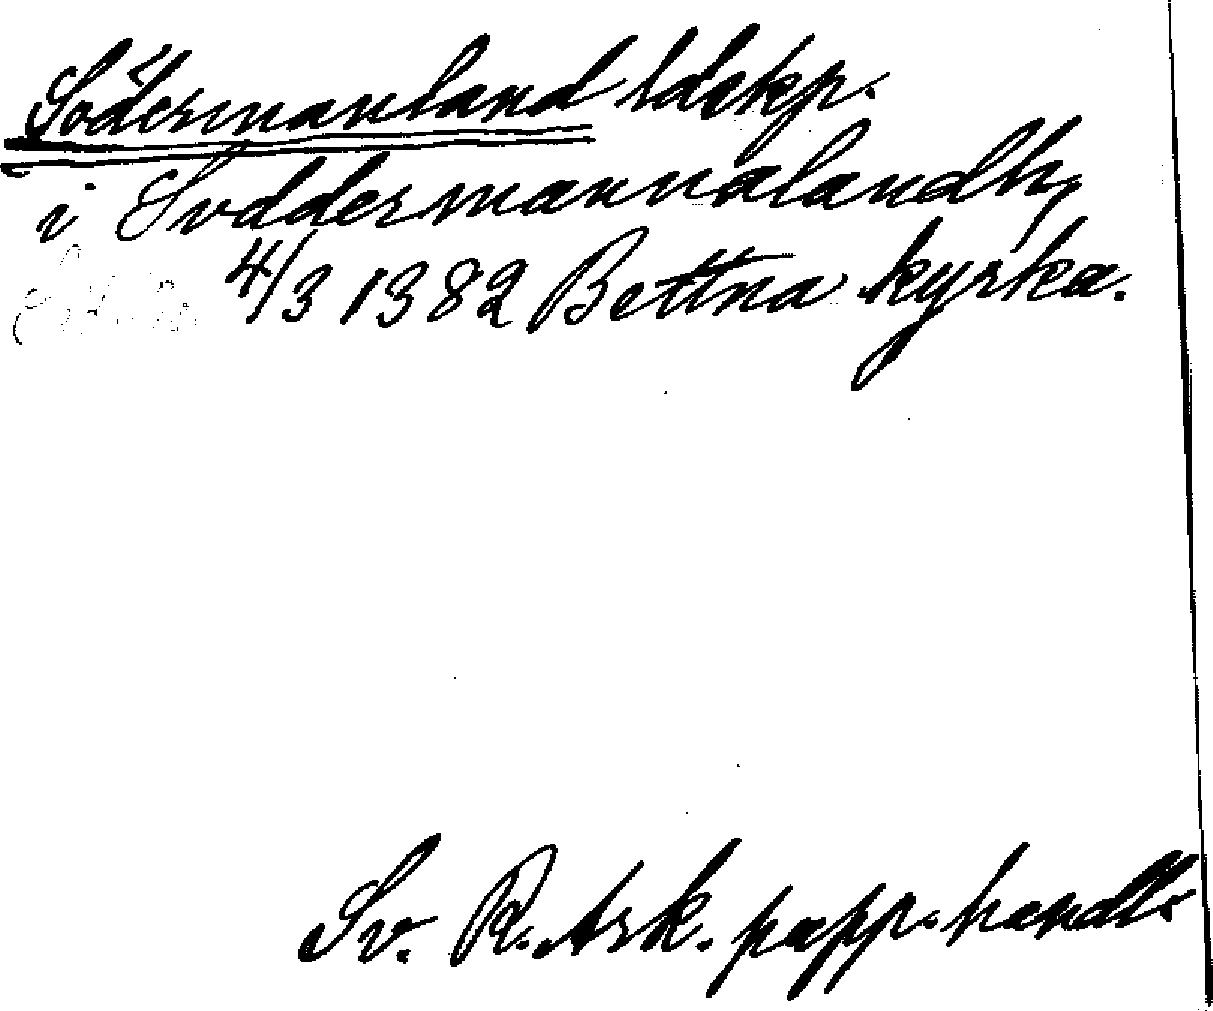 Södermanland ldskp.
i Suddermannalandh,
4/3 1382 Bettna kyrka.
Sv. R. Ark. papp. handl.